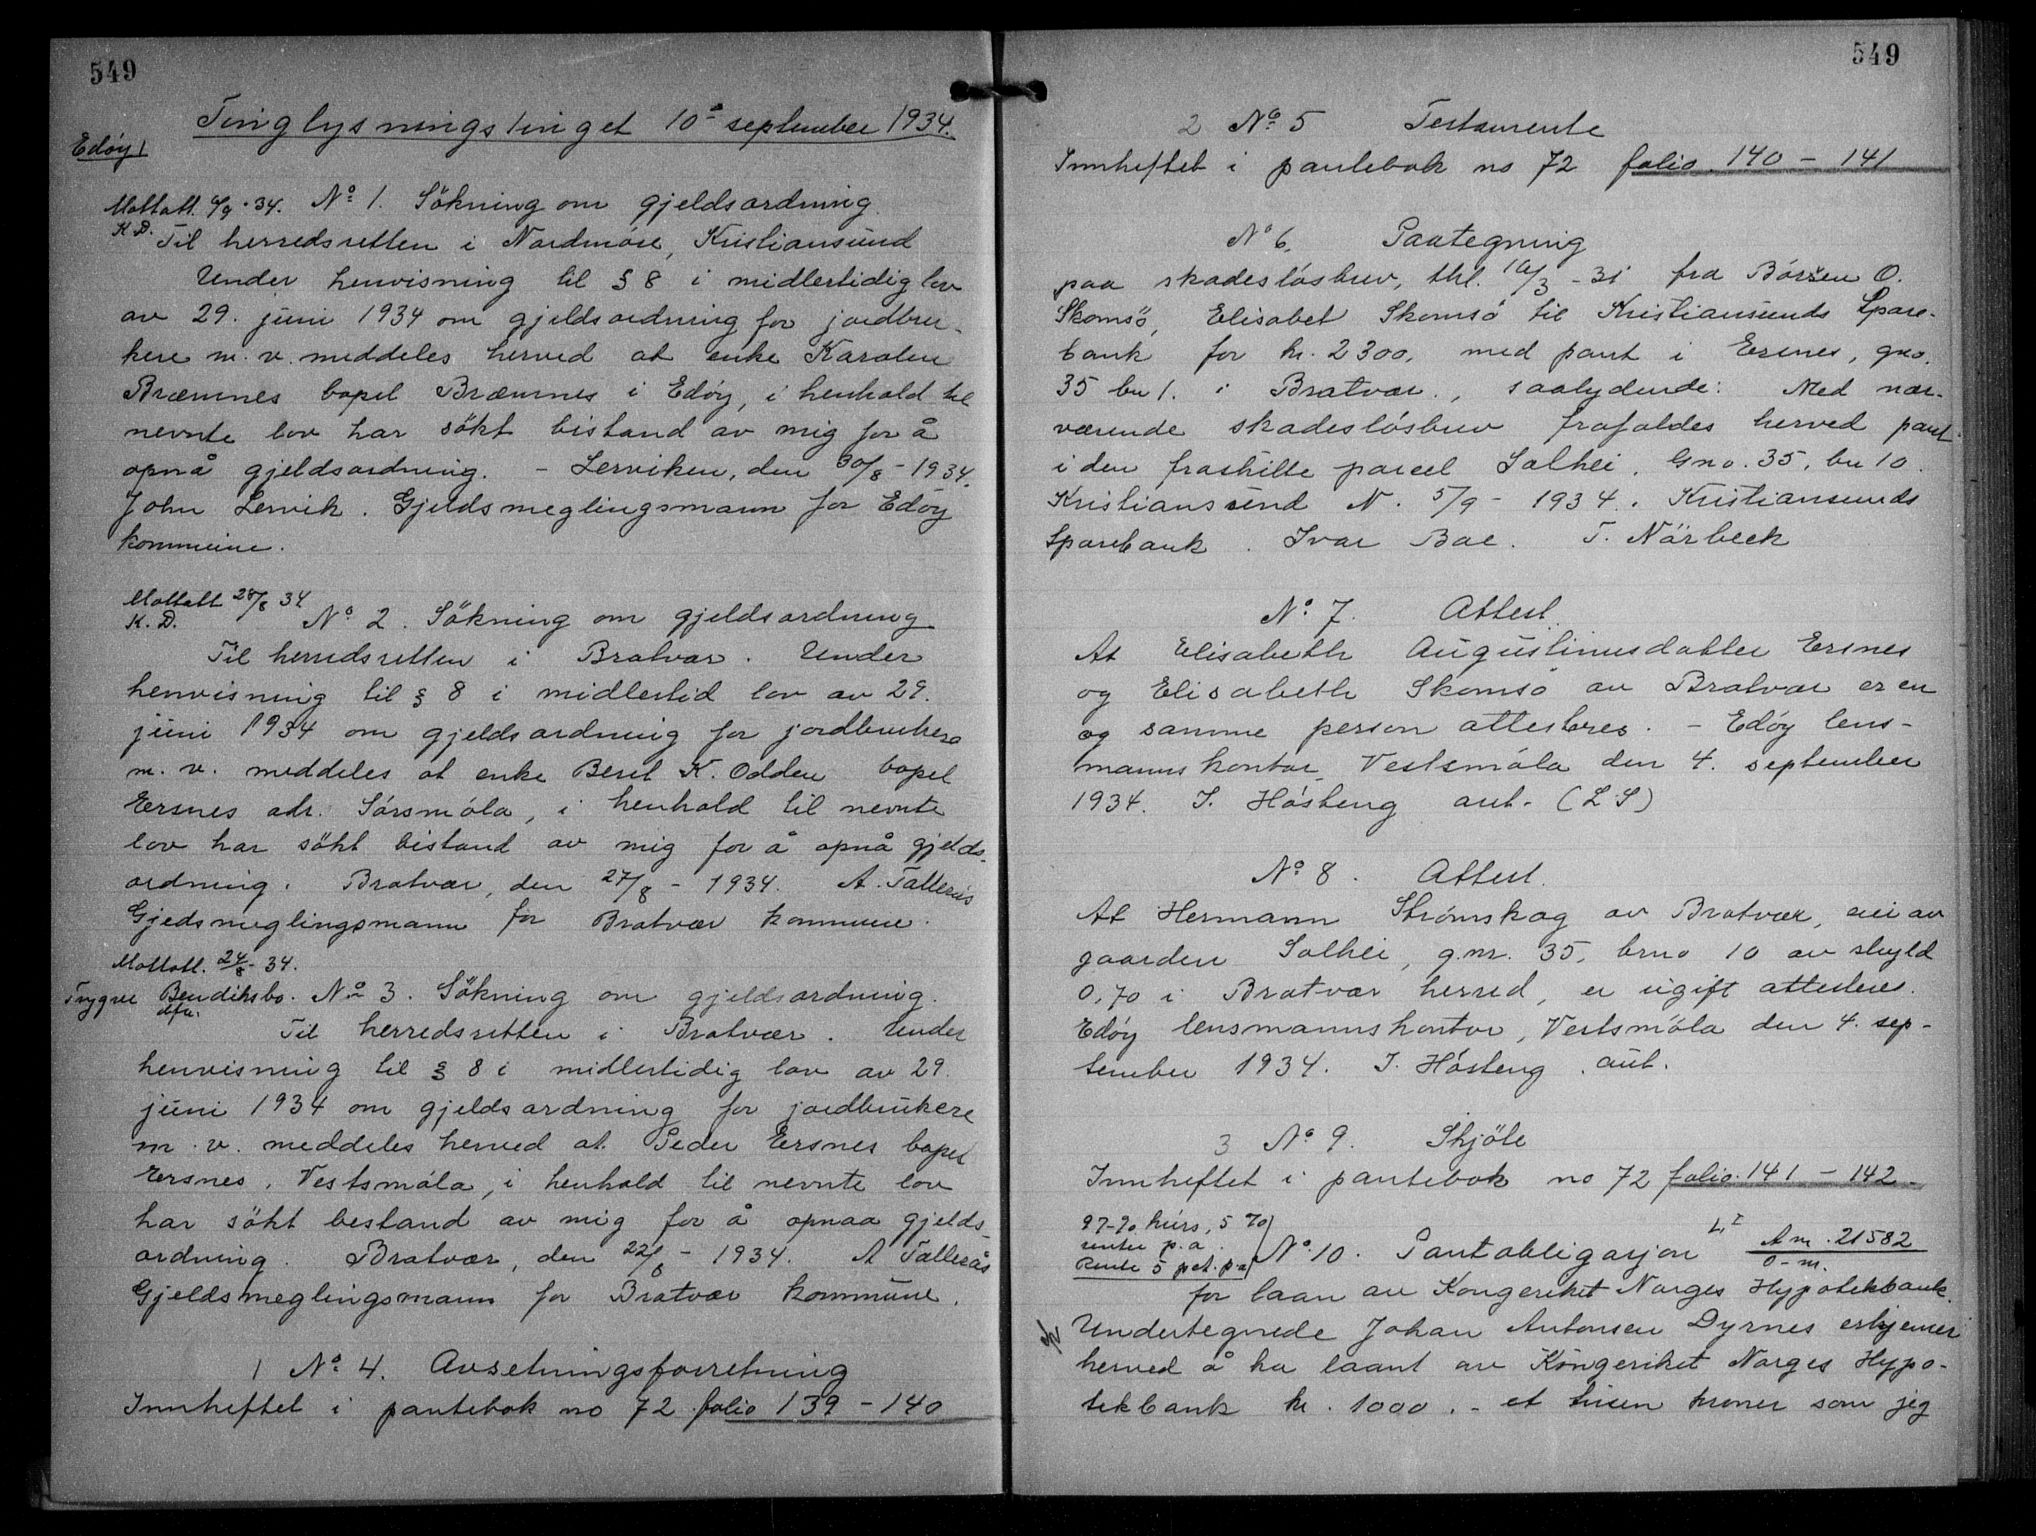 549
Tinglysningstinget 10de september 1934.
Edøy
Mottatt 4/9-34. No 1. Sökning om gjeldsordning.
K. D. Til herredsretten i Nordmöre, Kristiansund
Under henvisning til § 8 i midlertidig lov
av 29. juni 1934 om gjeldsordning for jordbru-
kere m. v. meddeles herved at enke Karolen
Bræmnes bopel Bræmnes i Edøy, i henhold til
nevnte lov har sökt bistand av mig for å
opnå gjeldsordning. - Lerviken, den 30/8 - 1934.
John Lervik. Gjeldsmeglingsmann for Edøy
kommune.
Mottatt 28/8 34
K. D. No 2. Sökning om gjeldsordning
Til herredsretten i Bratvær. Under
henvisning til § 8 i midlertid lov av 29.
juni 1934 om gjeldsordning for jordbrukere
m. v. meddeles at enke Beret K. Odden bopel
Ersnes adr. Sörsmöla, i henhold til nevnte
lov har sökt bistand av mig for å opnå gjelds-
ordning. Bratvær, den 27/8 - 1934. A. Tallerås
Gjedsmeglingsmann for Bratvær kommune.
Mottatt. 24/8-34.
Trygve Bendiksbo. No 3. Sökning om gjeldsordning.
dfu.
Til herredsretten i Bratvær. Under
henvisning til § 8 i midlertidig lov av 29.
juni 1934 om gjeldsordning for jordbrukere
m. v. meddeles herved at Peder Ersnes bopel
Ersnes, Vestsmöla, i henhold til nevnte lov
har sökt bestand av mig for å opnaa gjelds-
ordning. Bratvær, den 22/8 - 1934. A Tallerås
Gjeldsmeglingsmann for Bratvær kommune.
1 No 4. Avsetningsforretning
Innheftet i pantebok no 72 folio 139 - 140
549
2 No 5 Testamente
Innheftet i pantebok no 72 folio 140 - 141
No 6. Paategning
paa skadeslösbrev, thl. 10/3 - 31 fra Börsen O.
Skomsö, Elisabet Skomsö til Kristiansunds Spare-
bank for kr. 2300, med pant i Ersnes, gno.
35 bn 1. i Bratvær., saalydende: Med nær-
værende skadeslösbrev frafaldes herved pant
i den fraskilte parcel Solhei. Gno. 35, bn 10.
Kristianssund N. 5/9 - 1934. Kristiansunds
Sparebank. Ivar Bae. T. Nörbeck
No 7. Attest.
At Elisabeth Augustinusdatter Ersnes
og Elisabeth Skomsö av Bratvær er en
og samme person attesteres. - Edøy lens-
mannskontor, Vestsmöla den 4. september
1934. I. Hösteng aut. (L S)
No 8. Attest.
At Hermann Strömskag av Bratvær, eier av
gaarden Solhei, g.nr. 35, brno 10 av skyld
0,70 i Bratvær herred, er ugift attesteres.
Edøy lensmannskontor, Vestsmöla den 4. sep-
tember 1934. I. Hösteng. aut.
3 No 9. Skjöte
Innheftet i pantebok no 72 folio 141 - 142.
97-% kurs, 5 %
renter p.a.
Rente 5 pct. p.a. No 10. Pantobligasjon L. I A m. 21582
O-m.
for laan av Kongeriket Norges Hypotekbank.
Undertegnede Johan Antonsen Dyrnes erkjenner
herved å ha laant av Kongeriket Norges Hypo-
tekbank kr. 1000.- et tusen kroner som jeg